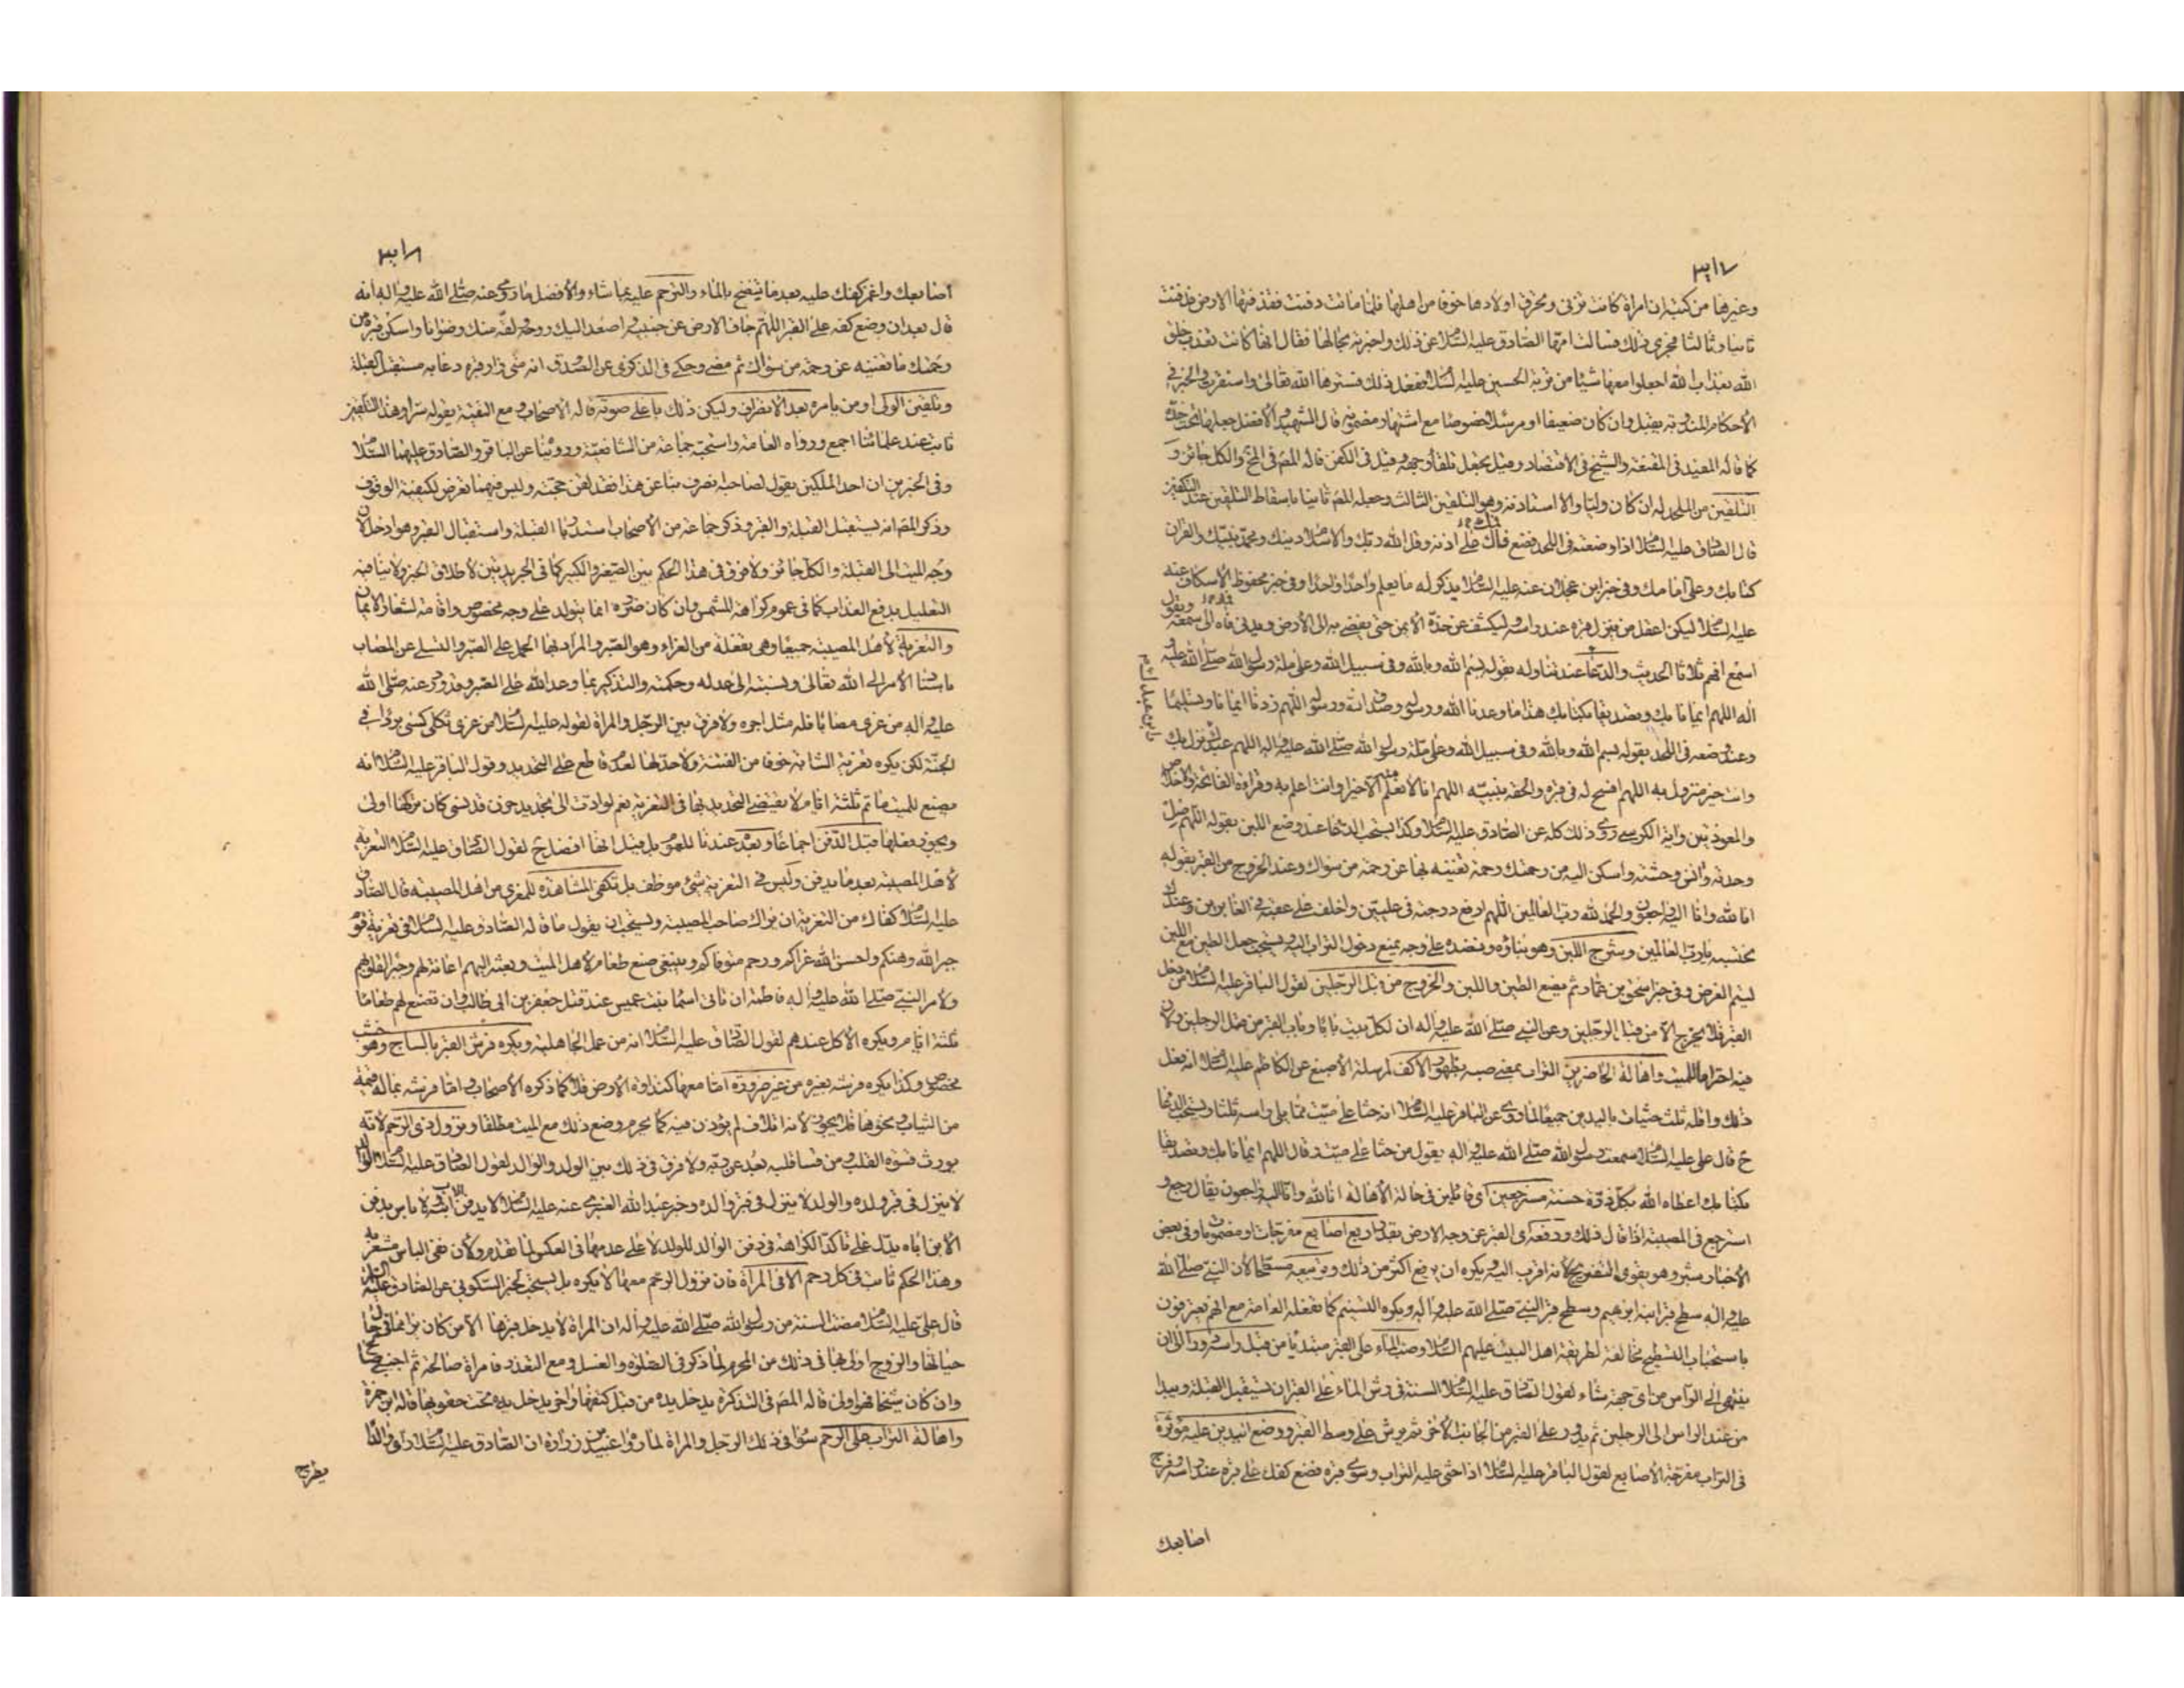 وغيرها من كتبه ان امراة كانت تزنى وتحرق اولادها خوفا من اهلها فلما ماتت دفنت فقذفتها الارض فدفنت
ثانيا وثالثا فجرى ذلك فسالت امها الصادق عليه السلام عن ذلك واخبرته بحالها فقال انها كانت تعذب خلق
الله بعذاب الله اجعلوا معها شيئا من تربة الحسين عليه السلام ففعل ذلك فسترها الله تعالى واستقرت والخبر في
الاحكام المندوبة يقبل وان كان ضعيفا او مرسلا خصوصا مع اشتهار مضمونه قال الشهيد والافضل جعلها تحت خده
كما قاله المفيد في المقنعة والشيخ في الاقتصاد وقيل يجعل تلقاء وجهه وقيل في الكفن قاله المص في المخ والكل جائز و
التلقين من الملحد له ان كان وليا والا استاذنه وهو التلقين الثالث وجعله المص ثانيا باسقاط التلقين عند التكفين
قال الصادق عليه السلام اذا وضعته في اللحد فضع فاك على اذنه وقل الله ربك والاسلام دينك ومحمد نبيك والقران
كتابك وعلى امامك وفي خبر ابن عجلان عنه عليه السلام يذكر له ما يعلم واحدا واحدا وفي خبر محفوظ الاسكاف عنه
عليه السلام ليكن اعقل من ينزل قبره عند راسه وليكشف عن خده الايمن حتى يفضى به الى الارض ويدنى فاه الى سمعه ويقول
اسمع افهم ثلاثا الحديث والدعاء عند تناوله بقوله بسم الله وبالله وفي سبيل الله وعلى ملة رسول الله صلى الله عليه و
اله اللهم ايمانا بك وتصديقا بكتابك هذا ما وعدنا الله ورسوله وصدق الله ورسوله اللهم زدنا ايمانا وتسليما
وعند وضعه في اللحد بقوله بسم الله وبالله وفي سبيل الله وعلى ملة رسول الله صلى الله عليه واله اللهم عبدك نزل بك
وانت خير منزول به اللهم افسح له في قبره والحقه بنبيه اللهم انا لا نعلم منه الا خيرا وانت اعلم به وقراءة الفاتحة والاخلاص
والمعوذتين واية الكرسى روى ذلك كله عن الصادق عليه السلام وكذا يستحب الدعاء عند وضع اللبن بقوله اللهم صل
وحدته وانس وحشته واسكن اليه من رحمتك رحمة تغنيه بها عن رحمة من سواك وعند الخروج من القبر بقوله
انا لله وانا اليه راجعون والحمد لله رب العالمين اللهم ارفع درجته في عليين واخلف على عقبه في الغابرين وعندك
نحتسبه يا رب العالمين وشرج اللبن وهو بناؤه ونضده على وجه يمنع دخول التراب اليه ويستحب جعل الطين مع اللبن
ليتم الغرض وفي خبر اسحق بن عمار ثم يضع الطين واللبن والخروج من قبل الرجلين لقول الباقر عليه السلام من دخل
القبر فلا يخرج الا من قبل الرجلين وعن النبي صلى الله عليه واله ان لكل بيت بابا وباب القبر من قبل الرجلين ولان
فيه احتراما للميت واهالة الحاضرين التراب بمعنى صبه بظهور الاكف لمرسلة الاصبغ عن الكاظم عليه السلام انه فعل
ذلك واقله ثلث حثيات باليدين جميعا لما روى عن الباقر عليه السلام انه حثا على ميت مما يلى راسه ثلثا ويستحب الدعاء
ح قال على عليه السلام سمعت رسول الله صلى الله عليه واله يقول من حثا على ميت وقال اللهم ايمانا بك وتصديقا
بكتابك اعطاه الله بكل ذرة حسنة مسترجعين اى قائلين في حالة الاهالة انا لله وانا اليه راجعون يقال رجع و
استرجع في المصيبة اذا قال ذلك ورفعه اى القبر عن وجه الارض بقدر اربع اصابع مفرجات او مضمومة وفي بعض
الاخبار شبر وهو يقوى التفريج لانه اقرب اليه ويكره ان يرفع اكثر من ذلك وتربيعه مسطحا لان النبي صلى الله
عليه واله سطح قبر ابنه ابرهيم وسطح قبر النبي صلى الله عليه واله ويكره التسنيم كما تفعله العامة مع انهم يعترفون
باستحباب التسطيح مخالفة لطريقة اهل البيت عليهم السلام وصب الماء على القبر مبتديا من قبل راسه ودورا الى ان
ينتهى الى الراس من اى جهة شاء لقول الصادق عليه السلام السنة في رش الماء على القبر ان تستقبل القبلة وتبدا
من عند الراس الى الرجلين ثم تدور على القبر من الجانب الاخر ثم يرش على وسط القبر ووضع اليدين عليه مؤثرة
في التراب مفرجة الاصابع لقول الباقر عليه السلام اذا حثى عليه التراب وسوى قبره فضع كفك على قبره عند راسه وفرج
اصابعك
اصابعك واغمز كفك عليه بعد ما ينضح بالماء والترحم عليه بما شاء والافضل ما روى عنه صلى الله عليه واله انه
قال بعد ان وضع كفه على القبر اللهم جاف الارض عن جنبيه واصعد اليك روحه ولقه منك رضوانا واسكن قبره من
رحمتك ما تغنيه عن رحمة من سواك ثم مضى وحكى في الذكرى عن الصدوق انه متى زار قبره دعا به مستقبل القبلة
وتلقين الولى او من يامره بعد الانصراف وليكن ذلك باعلى صوته قاله الاصحاب ومع التقية يقوله سرا وهذا التلقين
ثابت عند علمائنا اجمع ورواه العامة واستحبه جماعة من الشافعية وروينا عن الباقر والصادق عليهما السلام
وفي الخبرين ان احد الملكين يقول لصاحبه انصرف بنا عن هذا فقد لقن حجته وليس فيهما تعرض لكيفية الوقوف
وذكر المص انه يستقبل القبلة والقبر وذكر جماعة من الاصحاب استدبار القبلة واستقبال القبر وهو ادخل لان
وجه الميت الى القبلة والكل جائز ولا فرق في هذا الحكم بين الصغير والكبير كما في الجريدتين لاطلاق الخبر ولا ينافيه
التعليل بدفع العذاب كما في عموم كراهة المشمس وان كان ضرره انما يتولد على وجه مخصوص واقامة لشعار الايمان
والتعزية لاهل المصيبة جميعا وهى تفعلة من العزاء وهو الصبر والمراد بها الحمل على الصبر والتسلى عن المصاب
باسناد الامر الى الله تعالى ونسبته الى عدله وحكمته والتذكير بما وعد الله على الصبر وقد روى عنه صلى الله
عليه واله من عزى مصابا فله مثل اجره ولا فرق بين الرجل والمراة لقوله عليه السلام من عزى ثكلى كسى بردا في
الجنة لكن يكره تعزية الشابة خوفا من الفتنة ولا حد لها لعدم قاطع على التحديد وقول الباقر عليه السلام انه
يصنع للميت ماتم ثلثة ايام لا يقتضى التحديد بها في التعزية نعم لو ادت الى تجديد حزن قد نسى كان تركها اولى
ويجوز فعلها قبل الدفن اجماعا وبعده عندنا للعموم بل قيل انها افضل ح لقول الصادق عليه السلام التعزية
لاهل المصيبة بعد ما يدفن وليس في التعزية شئ موظف بل تكفى المشاهدة للمعزى من اهل المصيبة قال الصادق
عليه السلام كفاك من التعزية ان يراك صاحب المصيبة ويستحب ان يقول ما قاله الصادق عليه السلام في تعزية قوم
جبر الله وهنكم واحسن الله عزاكم ورحم متوفاكم وينبغى صنع طعام لاهل الميت وبعثه اليهم اعانة لهم وجبرا لقلوبهم
ولامر النبي صلى الله عليه واله فاطمة ان تاتى اسماء بنت عميس عند قتل جعفر بن ابى طالب وان تصنع لهم طعاما
ثلثة ايام ويكره الاكل عندهم لقول الصادق عليه السلام انه من عمل الجاهلية ويكره فرش القبر بالساج وهو خشب
مخصوص وكذا يكره فرشه بغيره من غير ضرورة اما معها كنداوة الارض فلا كما ذكره الاصحاب واما فرشه بما له قيمة
من الثياب ونحوها فلا يجوز لانه اتلاف لم يؤذن فيه كما يحرم وضع ذلك مع الميت مطلقا ونزول ذى الرحم لانه
يورث قسوة القلب ومن قسا قلبه بعد عن ربه ولا فرق في ذلك بين الولد والوالد لقول الصادق عليه السلام الوالد
لا ينزل في قبر ولده والولد لا ينزل في قبر والده وخبر عبد الله العنبرى عنه عليه السلام لا يدفن الاب ابنه ولا باس بدفن
الابن اباه يدل على تاكد الكراهة في دفن الوالد للولد لا على عدمها في العكس لما تقدم ولان نفى الباس مشعر به
وهذا الحكم ثابت في كل رحم الا في المراة فان نزول الرحم معها لا يكره بل يستحب لخبر السكونى عن الصادق عليه السلام
قال على عليه السلام مضت السنة من رسول الله صلى الله عليه واله ان المراة لا يدخل قبرها الا من كان يراها في حال
حياتها والزوج اولى بها في ذلك من المحرم لما ذكر في الصلوة والغسل ومع التعذر فامراة صالحة ثم اجنبى صالح
وان كان شيخا فهو اولى قاله المص في التذكرة يدخل يده من قبل كتفها واخر يدخل يده تحت حقويها قاله ابن حمزة
واهالة التراب على الرحم سواء في ذلك الرجل والمراة لما رواه عبيد بن زرارة ان الصادق عليه السلام راى والدا
يطرح